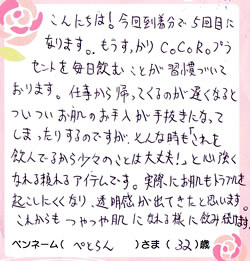 こんにちは!今回到着分で5回目に
なります。もうすっかりCoCoRoプラ
セントを毎日飲むことが習慣づいて
おります。仕事から帰ってくるのが遅くなると
ついついお肌のお手入が手抜きになって
しまったりするのですが、そんな時も「これを
飲んでるから少々のことは大丈夫!」と心強く
なれる頼れるアイテムです。実際にお肌もトラブルを
起こしにくくなり、透明感が出てきたと思います。
これからもつやつや肌になれる様に飲み続けます。
ペンネーム( ぺとらん )さま( 32 )歳